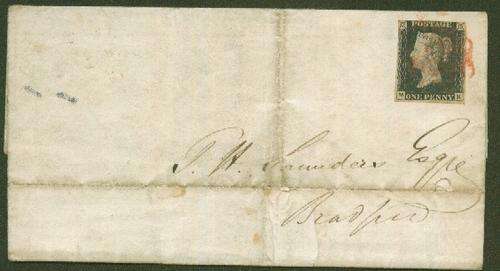 POSTAGE
ONE PENNY
T. H. Saunders Esqre
Bradford